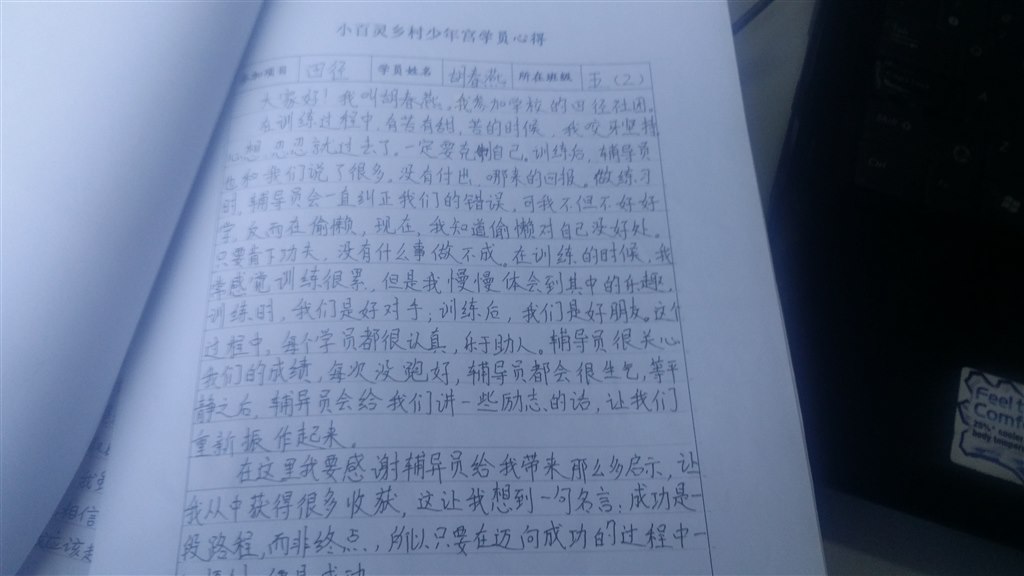 小百灵乡村少年宫学员心得
参加项目 田径 学员姓名 胡春燕 所在班级 五（2）
大家好！我叫胡春燕。我参加学校的田径社团。
在训练过程中,有苦有甜,苦的时候，我咬牙坚持
心想忍忍就过去了。一定要克制自己。训练后，辅导员
也和我们说了很多。没有付出，哪来的回报。做练习
时,辅导员会一直纠正我们的错误，可我不但不好好
学，反而在偷懒，现在，我知道偷懒对自己没好处。
只要肯下功夫，没有什么事做不成。在训练的时候，我
感觉训练很累，但是我慢慢体会到其中的乐趣。
训练时，我们是好对手，训练后，我们是好朋友。这个
过程中，每个学员都很认真，乐于助人。辅导员很关心
我们的成绩，每次没跑好，辅导员都会很生气，等平
静之后，辅导员会给我们讲一些励志的话，让我们
重新振作起来。
在这里我要感谢辅导员给我带来那么多启示，让
我从中获得很多收获，这让我想到一句名言：成功是一
段路程，而非终点，所以只要在迈向成功的过程中一
成功
相信
应该是
Feel t
Comf
20%* cooler
body temper